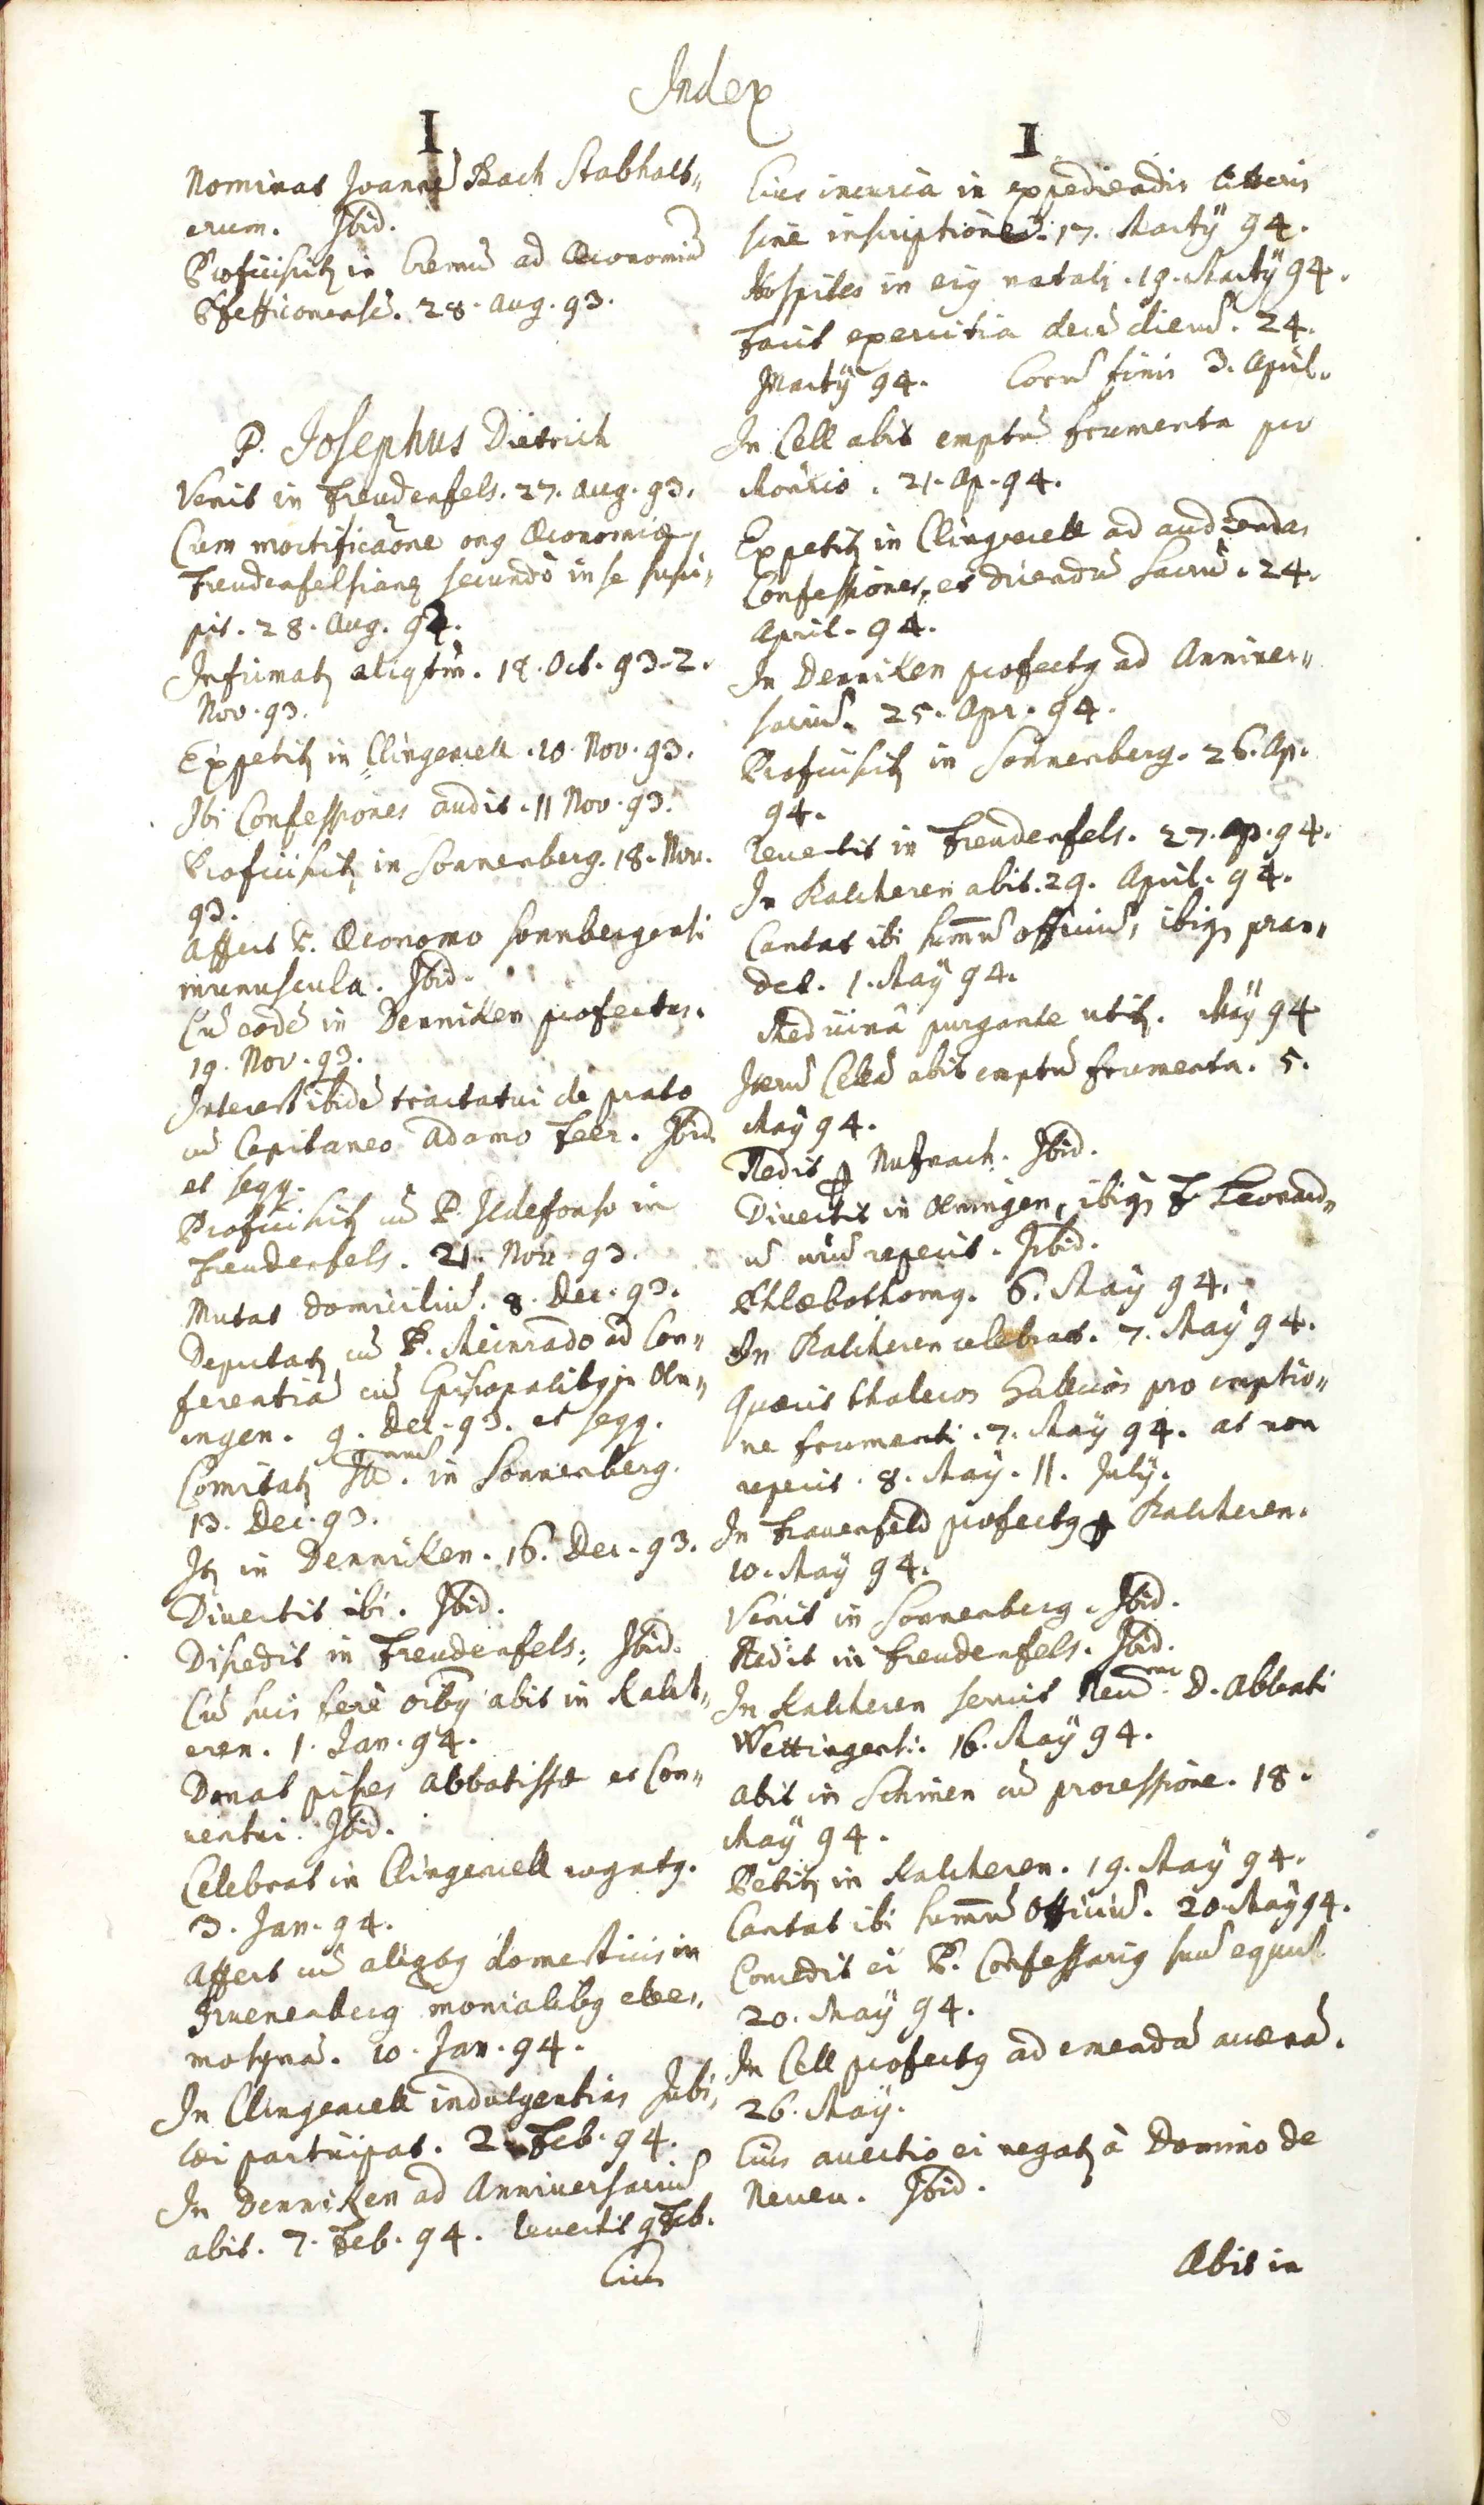 Index
I
Nominat Joannē Bach Stabhalt„
erum. Ibid.
Proficiscitꝫ in Eremū ad Œconomiā
Pfefficonensē. 28. Aug. 93.
P. Josephus Dietrich
Venit in Freudenfels. 27. Aug. 93.
Cum mortificaõne onꝰ Œconomiæ
Freudenfelsianę secundò in se susci„
pit. 28. Aug. 94.
Infirmatꝫ aliqtm̄. 18. Oct. 93. 2.
Nov. 93.
Expetitꝫ in Clingenzell. 10. Nov. 93.
Ibi Confessiones audit. 11 Nov. 93.
Proficiscitꝫ in Sonnenberg. 18. Nov.
93.
Affert P. Œconomo Sonnbergensi
munuscula. Ibid.
Cū eodē in Denniken profectus.
19. Nov. 93.
Interest ibidē tractatui de prato
cū Capitaneo Adamo Feer. Ibid
et seqq.
Proficiscitꝫ cū P. Ildefonso in
Freudenfels. 21. Nov. 93.
Mutat domiciliū. 8. Dec. 93.
Deputatꝫ cū P. Meinrado ad Con„
ferentiā cū Episcopalibꝰ in Oen„
ingen. 9. Dec. 93. et seqq.
Comitatꝫ Ill.mū in Sonnenberg.
13. Dec. 93.
Itꝫ in Denniken. 16. Dec. 93.
Divertit ibi. Ibid.
Discedit in Freudenfels. Ibid.
Cū suis ferè oībꝰ abit in Kalch„
eren. 1. Jan. 94.
Donat pisces Abbatissæ et Con„
ventui. Ibid.
Celebrat in Clingenzell rogatꝰ.
3. Jan. 94.
Affert cū aliqbꝰ domesticis in
Grüenenberg monialibꝰ elee„
mosynā. 10. Jan. 94.
In Clingenzell indulgentias Jubi„
læi participat. 2. Feb. 94.
In Denniken ad Anniversariū
abit. 7. Feb. 94. revertit 9 Feb.
Eius
I
Eius incuria in expediendis litteris
sine inscriptione. 17. Martÿ 94.
Hospites in eiꝰ natali. 19. Martÿ 94.
Facit exercitia decē dierū. 24.
Martÿ 94. Eorū finis 3. April.
In Cell abit emptū frumenta pro
Monrio. 21. Ap. 94.
Expetitꝫ in Clingenzell ad audiendas
Confessiones, et dicendū Sacrū. 24.
April. 94.
In Denniken profectꝰ ad Anniver„
sariū. 25. Apr. 94.
Proficiscitꝫ in Sonnenberg. 26. Ap.
94.
Revertit in Freudenfels. 27. Ap. 94.
In Kalcheren abit. 29. April. 94.
Cantat ibi sum̄ū officiū, ibiqꝫ pran„
det. 1. Maÿ 94.
Medicinâ purgante utitꝫ. Maÿ 94
Iterū Cellā abit emptū frumenta. 5.
Maÿ 94.
Redit ꝑ Nusbach. Ibid.
Divertit in Oeningen, ibiqꝫ F. Leonard„
ū nr̄ū reperit. Ibid.
Phlæbothomꝰ. 6. Maÿ 94.
In Kalcheren celebrat. 7. Maÿ 94.
Quærit thaleros Gallicos pro emptio„
ne frumenti. 7. Maÿ 94. at non
reperit. 8. Maÿ. 11. Julÿ.
In Frauenfeld profectꝰ ꝑ Kalcheren.
10. Maÿ 94.
Venit in Sonnenberg. Ibid.
Redit in Freudenfels. Ibid.
In Kalcheren servit Reu.mo D. Abbati
Wettingensi. 16. Maÿ 94.
Abit in Schinen cū processione. 18.
Maÿ 94.
Petitꝫ in Kalcheren. 19. Maÿ 94.
Cantat ibi sum̄ū Officiū. 20. Maÿ 94.
Concedit ei P. Confessariꝰ suū equū.
20. Maÿ 94.
In Cell profectꝰ ad emendā avenā.
26. Maÿ.
Eius avectio ei negatꝫ à Domino de
Neveu. Ibid.
Abit in